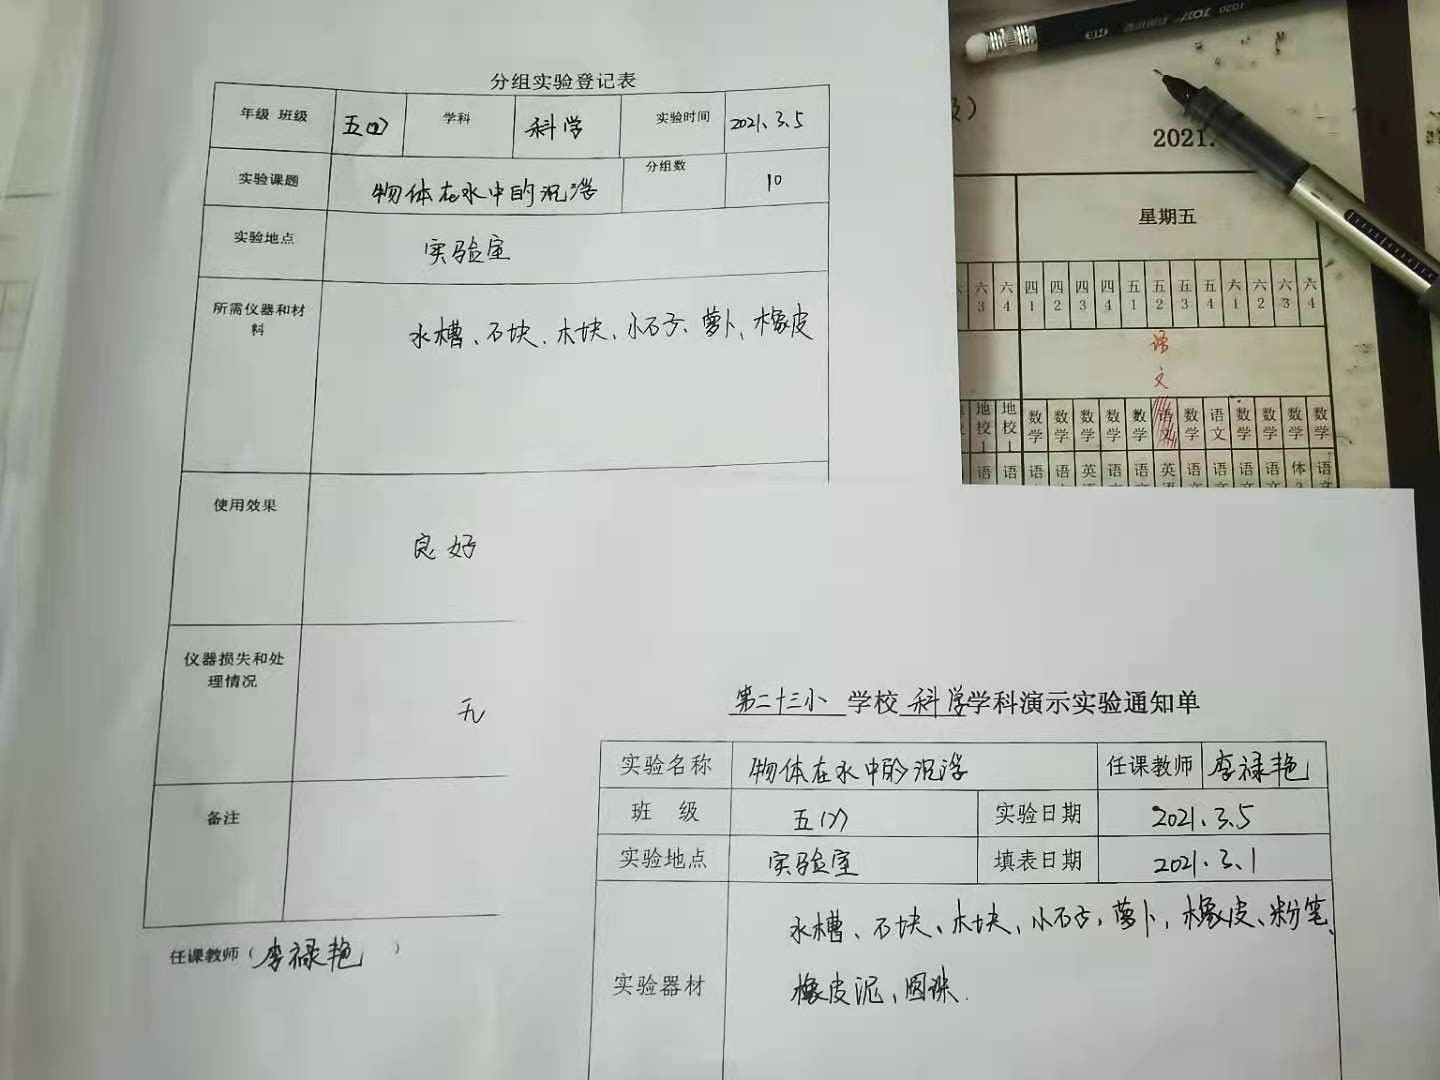 分组实验登记表
年级 班级 学科 科学 实验时间 2021.3.5
实验课题 物体在水中的沉浮 分组数 10
实验地点 实验室
所需仪器和材料 水槽、石块、木块、小石子、萝卜、橡皮
使用效果 良好
仪器损失和处理情况 无
备注
任课教师（李禄艳）
第二十三小 学校 科学 学科演示实验通知单
实验名称 物体在水中的沉浮 任课教师 李禄艳
班 级 实验日期 2021.3.5
实验地点 实验室 填表日期 2021.3.1
实验器材 水槽、石块、木块、小石子、萝卜、橡皮、粉笔、
橡皮泥、圆珠.
2021.
星期五
六3 六4 四1 四2 四3 四4 五1 五2 五3 五4 六1 六2 六3 六4
语文
地校1 地校1 数学 数学 数学 数学 数学 数学 语文 数学 数学 数学 数学